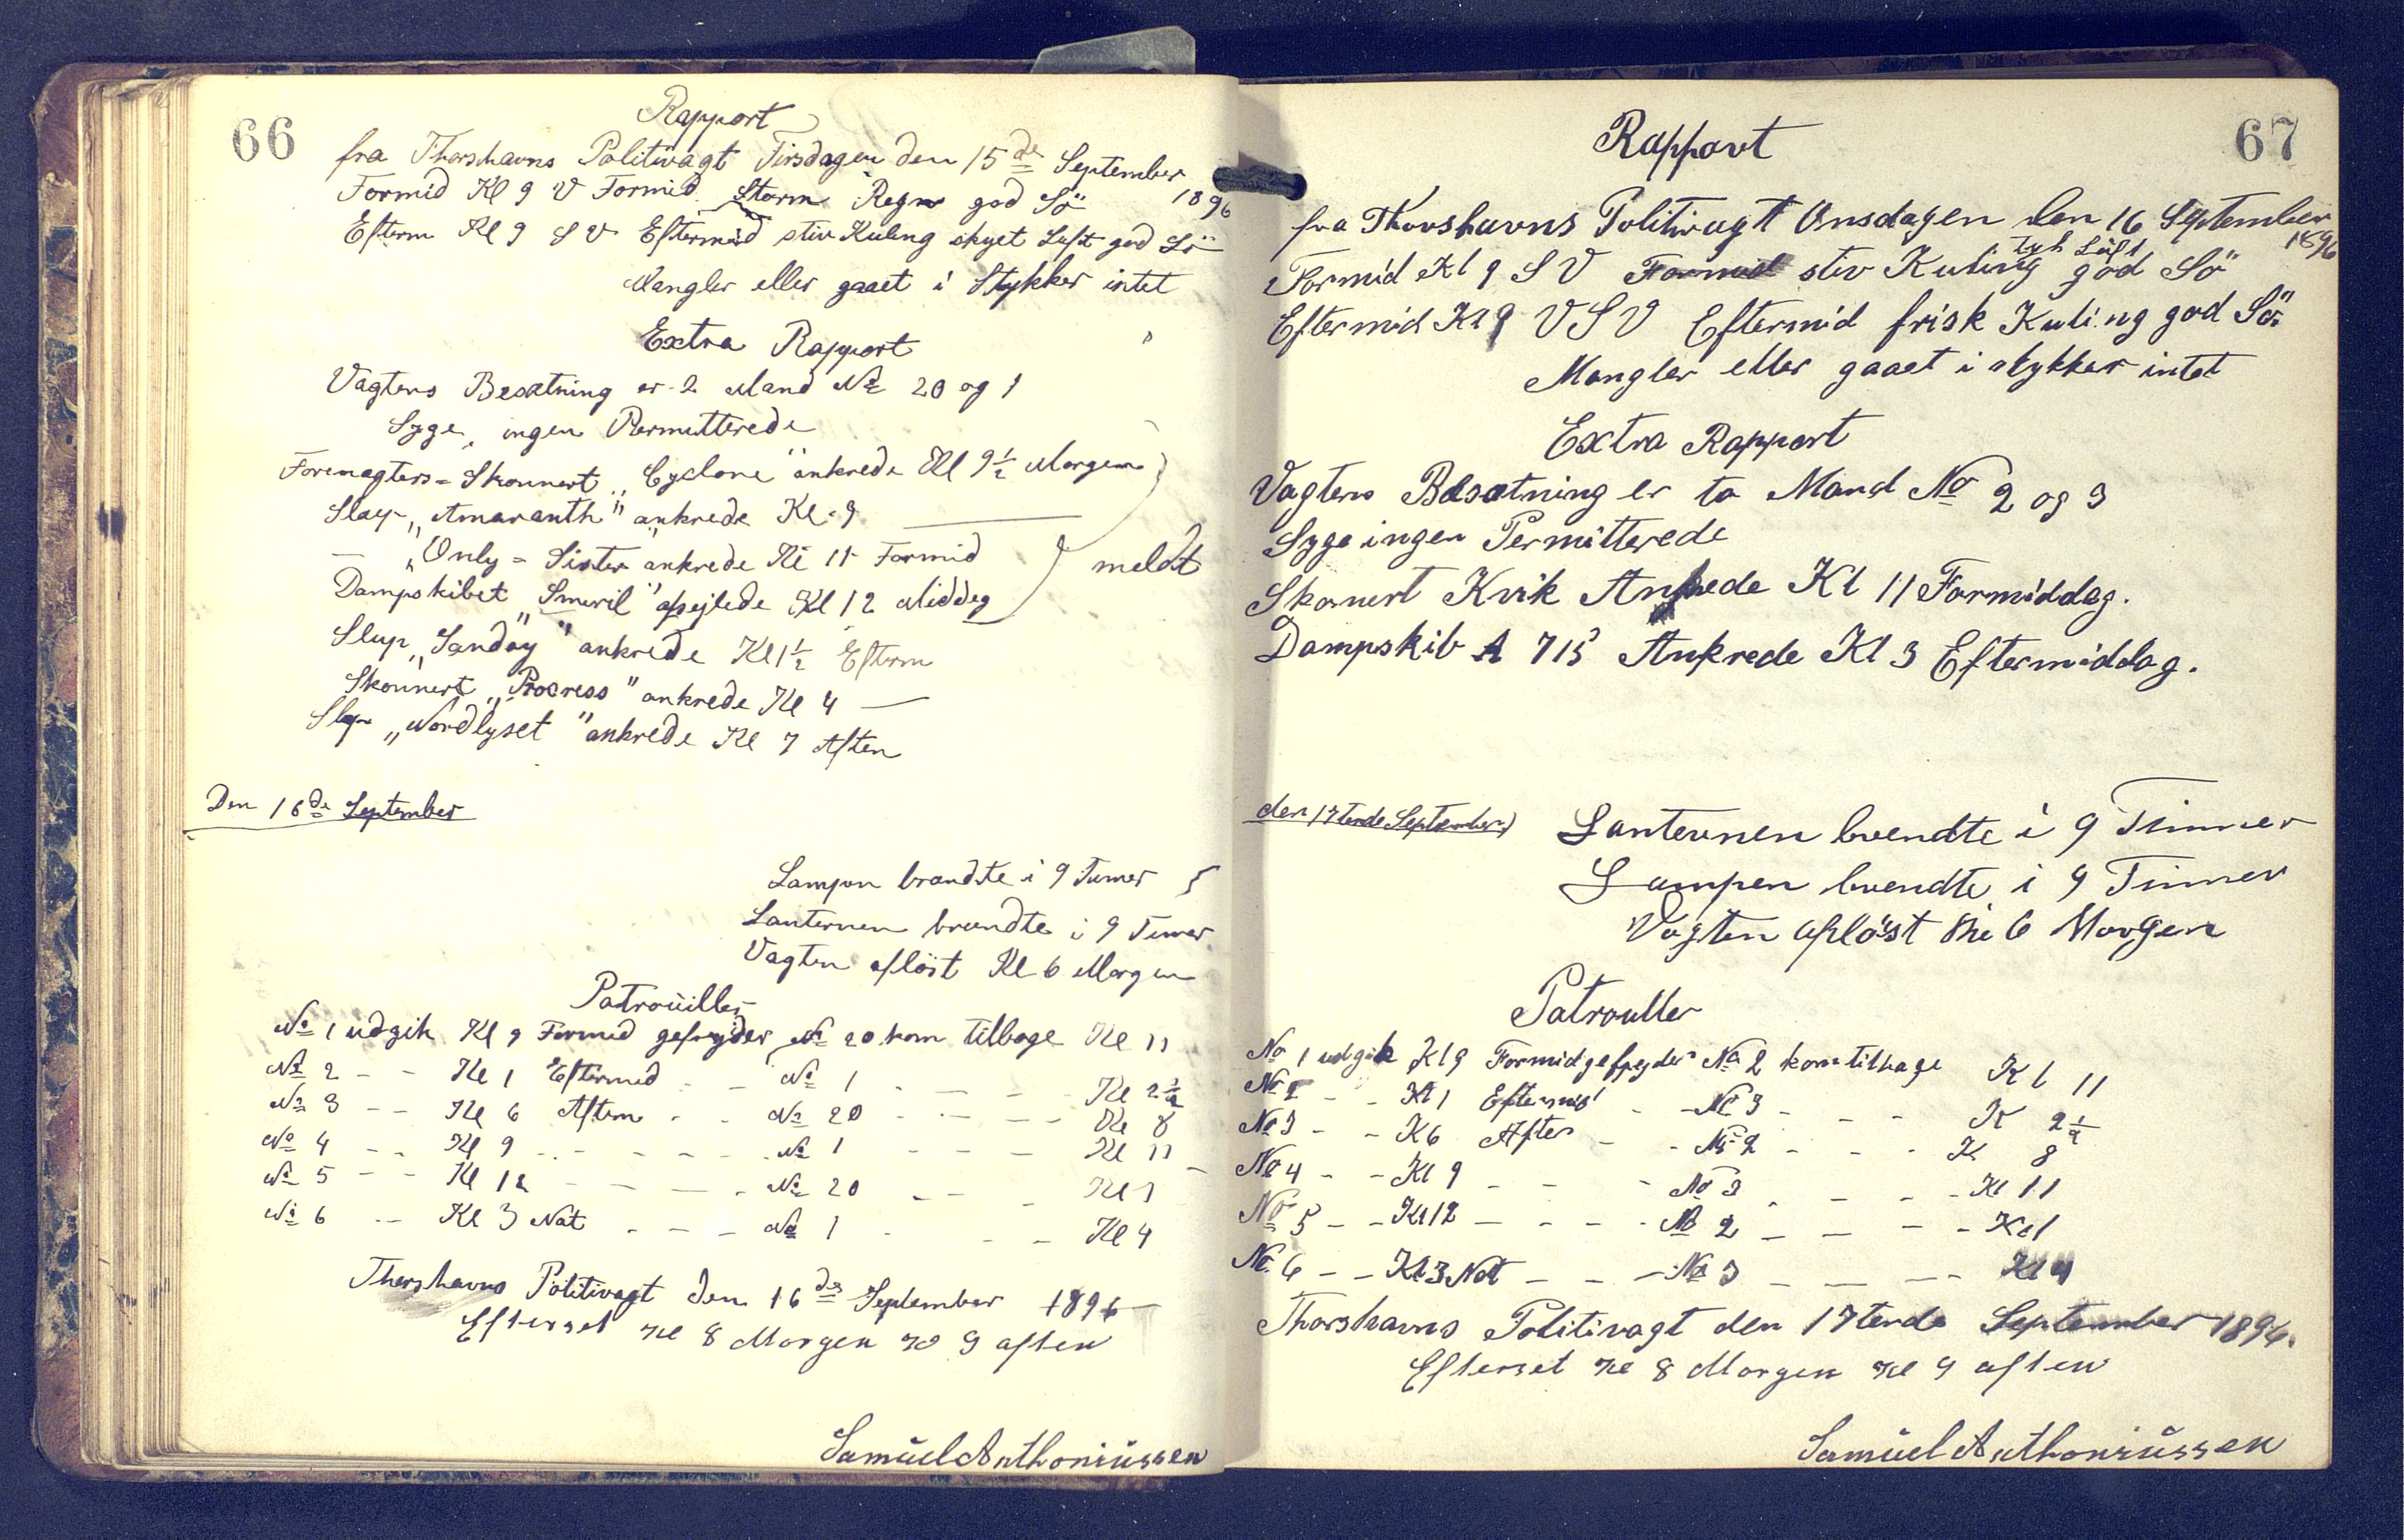 66
Rapport
fra Thorshavns Politivagt Tirsdagen den 15de September
1896
Formid Kl 9 V Formid. Storm Regn god Sö
Efterm Kl 9 S V Eftermid stiv Kuling skyet Luft god Sö
Mangler eller gaaet i Stykker intet
Extra Rapport
Vagtens Besætning er 2 Mand No 20 og 1
Syge, ingen Permitterede
Foremagters = Skonnert „Cyclone" ankrede Kl 9½ Morgen
Slup „Amaranth" ankrede Kl. 9 —
— „Only = Sister" ankrede Kl 11 Formid
meldt
Dampskibet „Smiril" afsejlede Kl 12 Middag
Slup „Sandöy" ankrede Kl 1½ Efterm
Skonnert „Procress" ankrede Kl 4 —
Slup „Nordlyset" ankrede Kl 7 Aften
Den 16de September
Lampen brændte i 9 Timer
Lanternen brændte i 9 Timer
Vagten aflöst Kl 6 Morgen
Patrouiller
No 1 udgik Kl 9 Formid gefrejder No 20 kom tilbage Kl 11
No 2 - - Kl 1 Eftermid - - No 1 - - - Kl 2½
No 3 - - Kl 6 Aften - - No 20 - - - Kl 8
No 4 - - Kl 9 - - - - No 1 - - - Kl 11
No 5 - - Kl 12 - - - - No 20 - - - Kl 1
No 6 - - Kl 3 Nat - - - No 1 - - - Kl 4
Thorshavns Politivagt den 16de September 1896
Efterset Kl 8 Morgen Kl 9 aften
Samúel Anthoniússen
67
Rapport
fra Thorshavns Politivagt Onsdagen den 16 September
1896
tyk Luft
Formid Kl 9 S V Formid stiv Kuling god Sö
Eftermid Kl 9 V S V Eftermid frisk Kuling god Sö
Mangler eller gaaet i stykker intet
Extra Rapport
Vagtens Besætning er to Mand No 2 og 3
Syge ingen Permitterede
Skonert Kvik Ankrede Kl 11 Formiddag.
Dampskib A 715 Ankrede Kl 3 Eftermiddag.
den 17tende September
Lanternen brendte i 9 Timer
Lampen brendte i 9 Timer
Vagten aflöst Kl 6 Morgen
Patrouller
No 1 udgik Kl 9 Formid gefrejder No 2 kom tilbage Kl 11
No 2 - - Kl 1 Eftermid - - No 3 - - - K 2½
No 3 - - K 6 Aften - - No 2 - - - K 8
No 4 - - Kl 9 - - - No 3 - - - Kl 11
No 5 - - Kl 12 - - - No 2 - - - Kl 1
No. 6 - - Kl 3 Nat - - - No 3 - - - Kl 4
Thorshavns Politivagt den 17tende September 1896.
Efterset Kl 8 Morgen Kl 9 aften
Samúel Anthoniússen